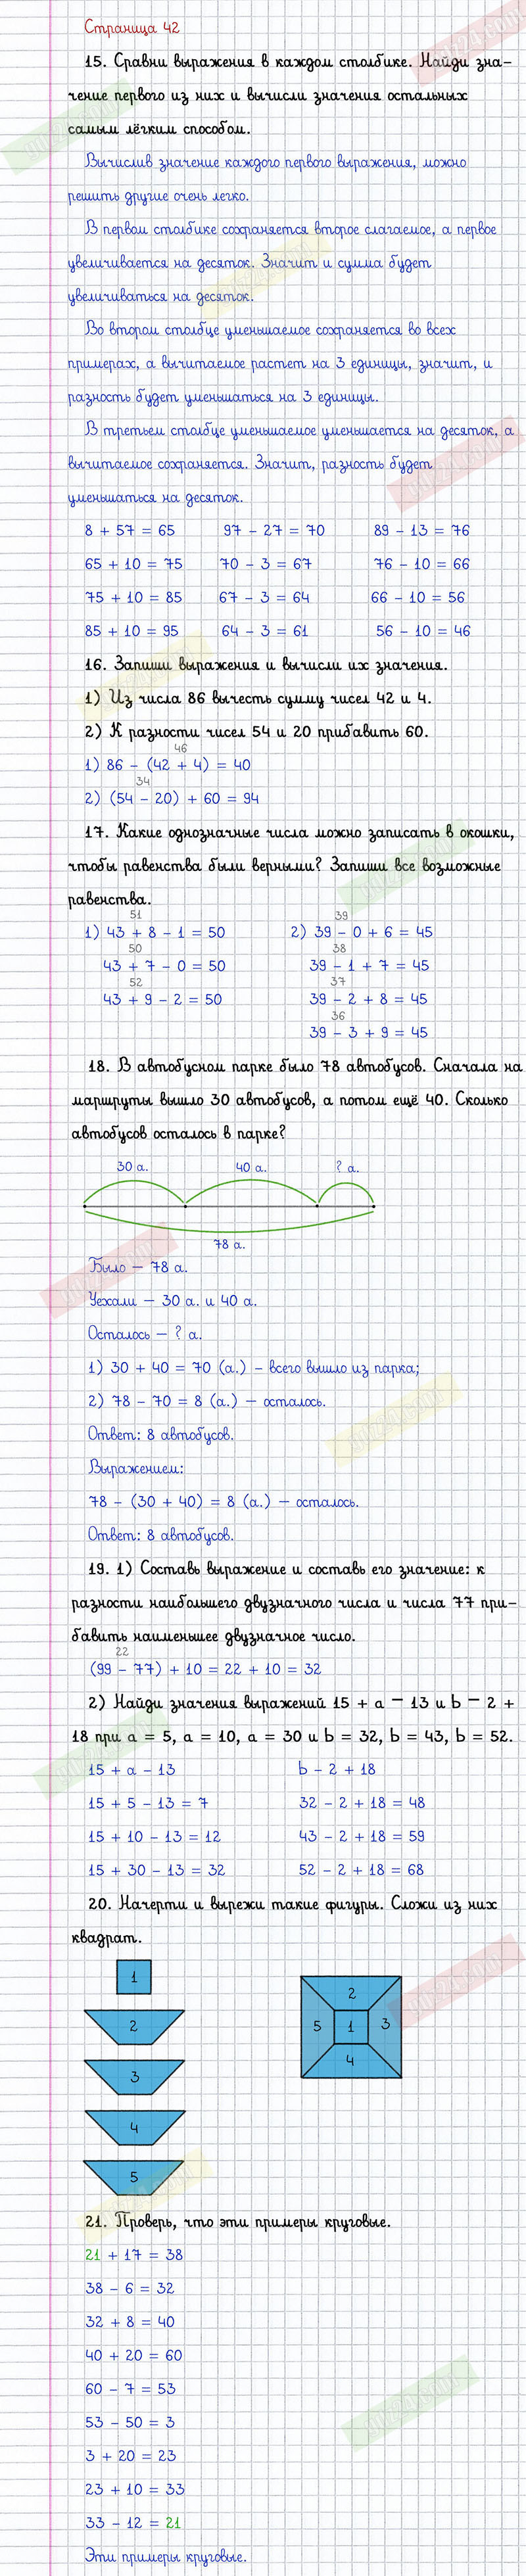 Страница 42
15. Сравни выражения в каждом столбике. Найди зна-
чение первого из них и вычисли значения остальных
самым лёгким способом.
Вычислив значение каждого первого выражения, можно
решить другие очень легко.
В первом столбике сохраняется второе слагаемое, а первое
увеличивается на десяток. Значит и сумма будет
увеличиваться на десяток.
Во втором столбце уменьшаемое сохраняется во всех
примерах, а вычитаемое растет на 3 единицы, значит, и
разность будет уменьшаться на 3 единицы.
В третьем столбце уменьшаемое уменьшается на десяток, а
вычитаемое сохраняется. Значит, разность будет
уменьшаться на десяток.
8 + 57 = 65 97 - 27 = 70 89 - 13 = 76
65 + 10 = 75 70 - 3 = 67 76 - 10 = 66
75 + 10 = 85 67 - 3 = 64 66 - 10 = 56
85 + 10 = 95 64 - 3 = 61 56 - 10 = 46
16. Запиши выражения и вычисли их значения.
1) Из числа 86 вычесть сумму чисел 42 и 4.
2) К разности чисел 54 и 20 прибавить 60.
46
1) 86 - (42 + 4) = 40
34
2) (54 - 20) + 60 = 94
17. Какие однозначные числа можно записать в окошки,
чтобы равенства были верными? Запиши все возможные
равенства.
51 39
1) 43 + 8 - 1 = 50 2) 39 - 0 + 6 = 45
50 38
43 + 7 - 0 = 50 39 - 1 + 7 = 45
52 37
43 + 9 - 2 = 50 39 - 2 + 8 = 45
36
39 - 3 + 9 = 45
18. В автобусном парке было 78 автобусов. Сначала на
маршруты вышло 30 автобусов, а потом ещё 40. Сколько
автобусов осталось в парке?
30 а. 40 а. ? а.
78 а.
Было — 78 а.
Уехали — 30 а. и 40 а.
Осталось — ? а.
1) 30 + 40 = 70 (а.) - всего вышло из парка;
2) 78 - 70 = 8 (а.) — осталось.
Ответ: 8 автобусов.
Выражением:
78 - (30 + 40) = 8 (а.) — осталось.
Ответ: 8 автобусов.
19. 1) Составь выражение и составь его значение: к
разности наибольшего двузначного числа и числа 77 при-
бавить наименьшее двузначное число.
22
(99 - 77) + 10 = 22 + 10 = 32
2) Найди значения выражений 15 + a — 13 и b — 2 +
18 при a = 5, a = 10, a = 30 и b = 32, b = 43, b = 52.
15 + a - 13 b - 2 + 18
15 + 5 - 13 = 7 32 - 2 + 18 = 48
15 + 10 - 13 = 12 43 - 2 + 18 = 59
15 + 30 - 13 = 32 52 - 2 + 18 = 68
20. Начерти и вырежи такие фигуры. Сложи из них
квадрат.
1
2
3
4
5
2
5 1 3
4
21. Проверь, что эти примеры круговые.
21 + 17 = 38
38 - 6 = 32
32 + 8 = 40
40 + 20 = 60
60 - 7 = 53
53 - 50 = 3
3 + 20 = 23
23 + 10 = 33
33 - 12 = 21
Эти примеры круговые.